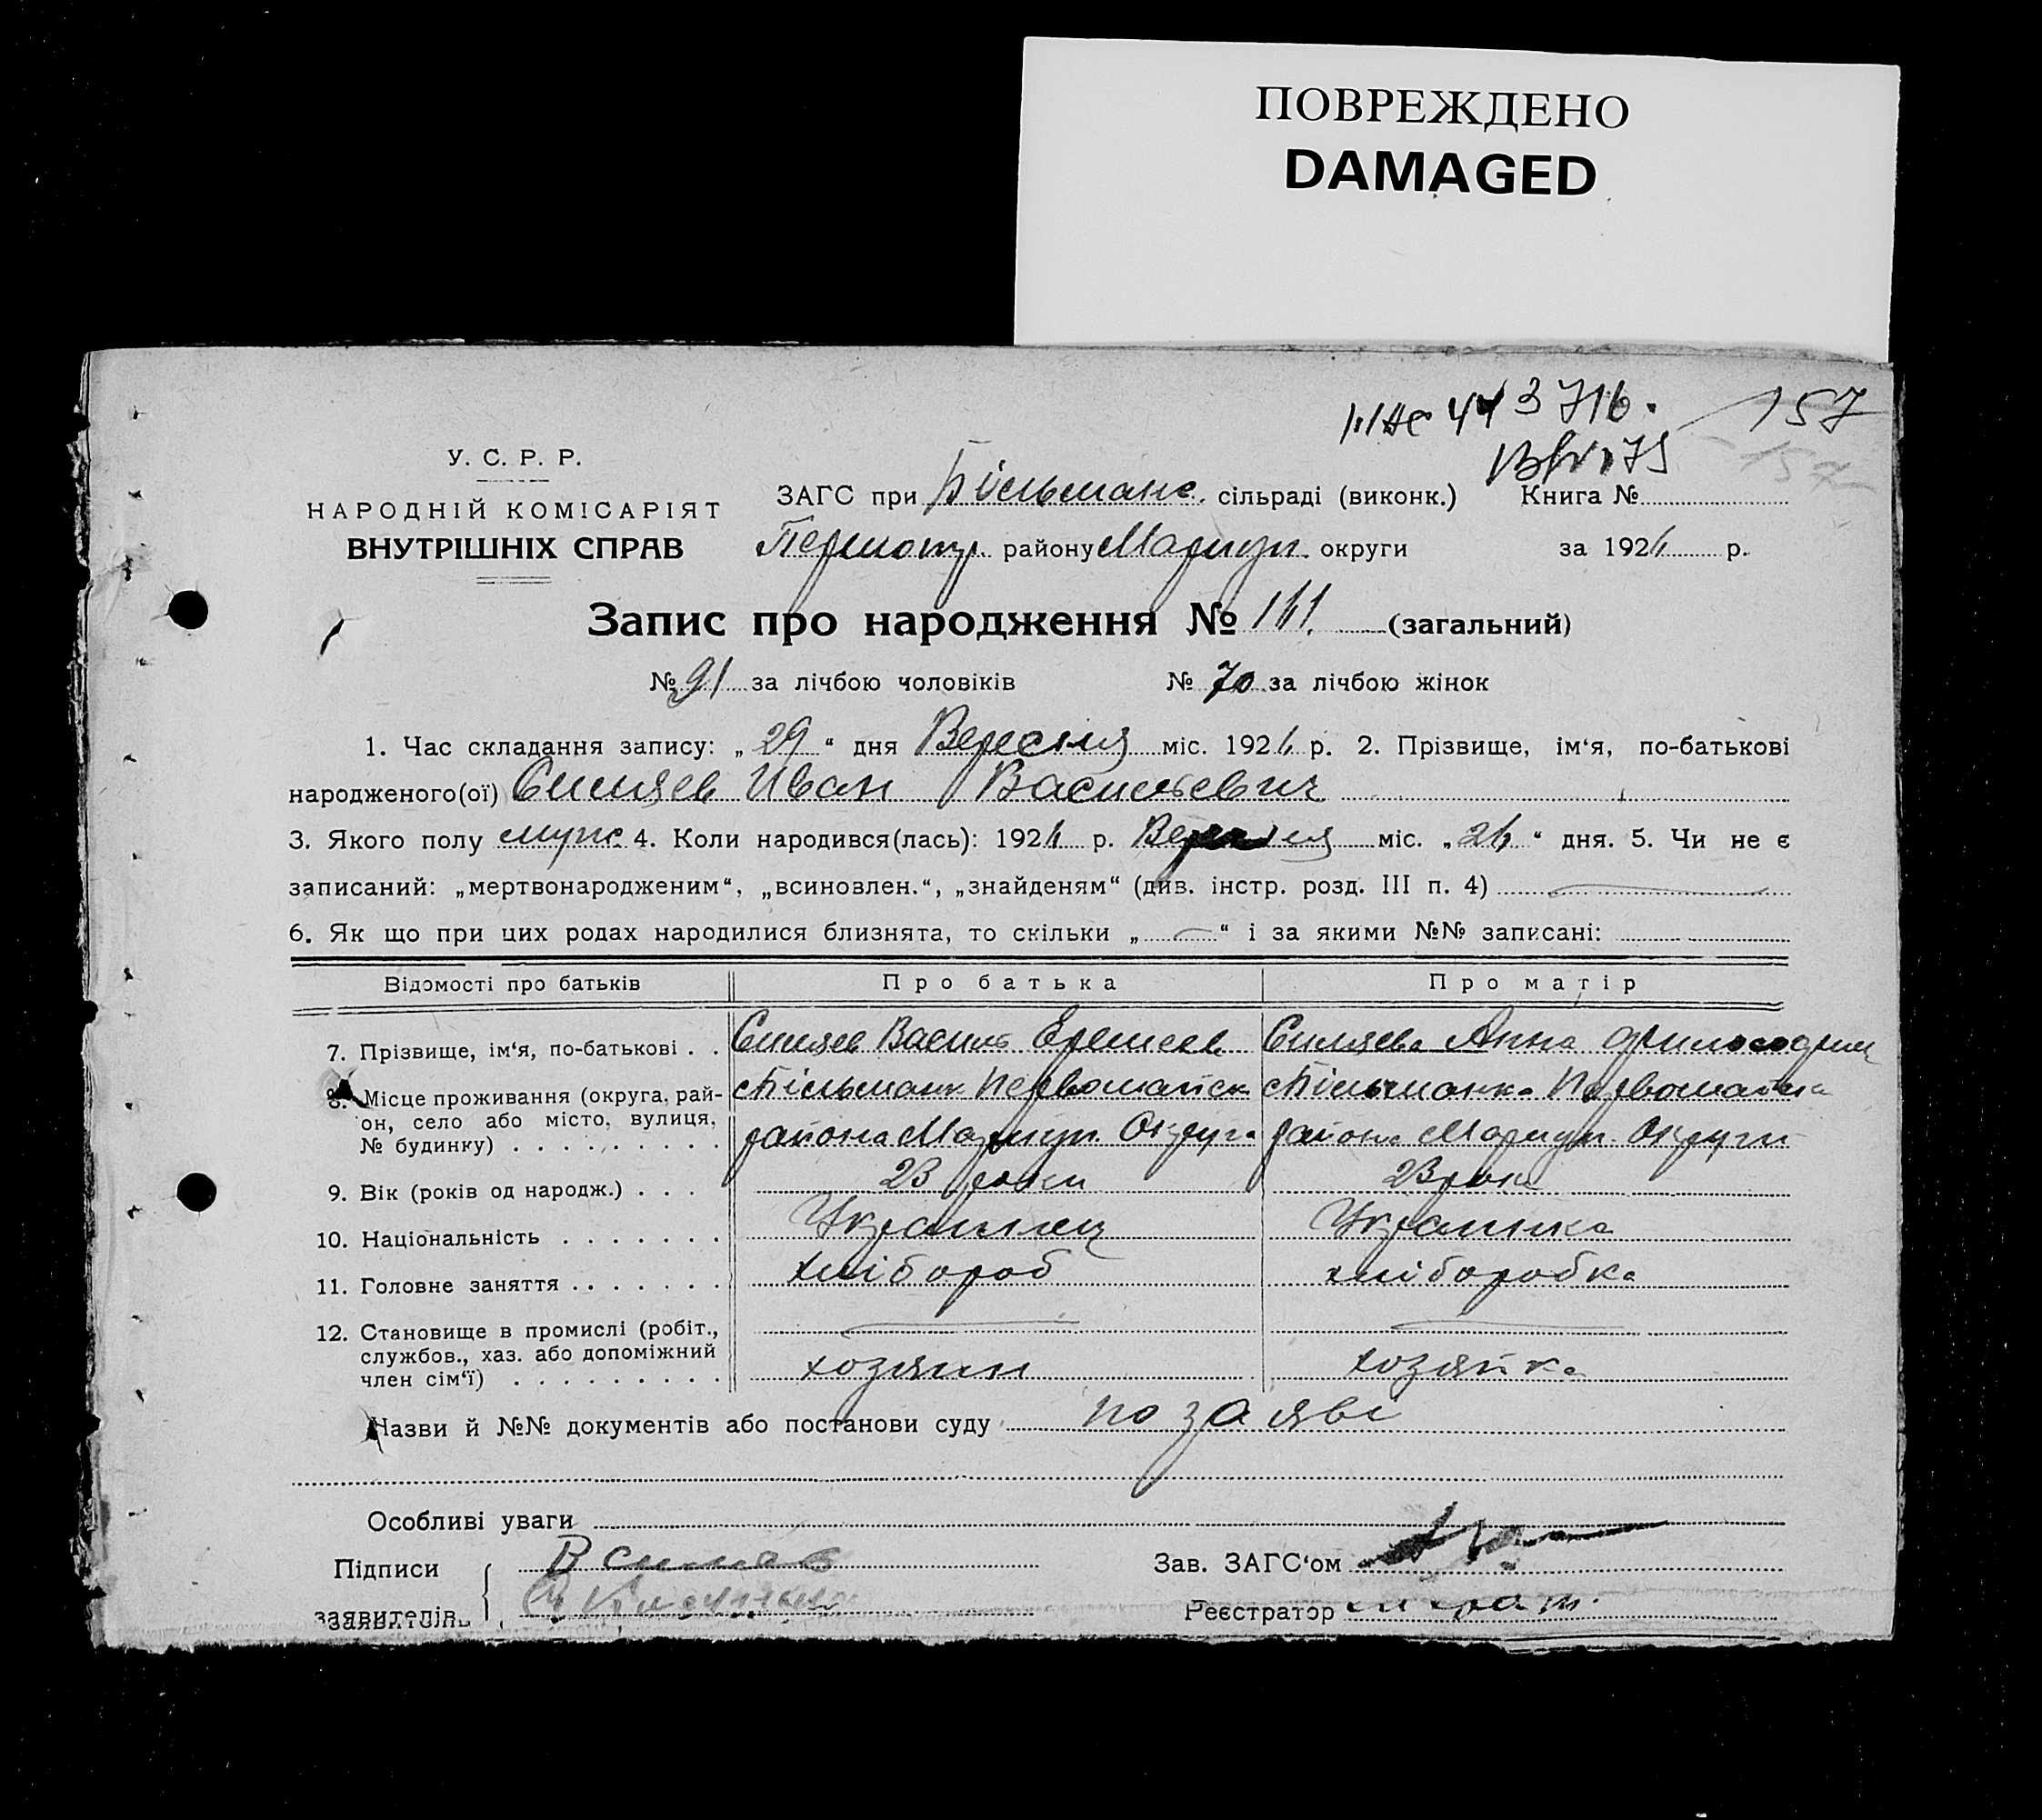 ПОВРЕЖДЕНО
DAMAGED
443716. 157
157
У. С. Р. Р.
НАРОДНІЙ КОМІСАРІЯТ
ВНУТРІШНІХ СПРАВ
ЗАГС при Більманс. сільраді (виконк.) Книга №
району Мариуп. округи за 1926 р.
Запис про народження № 161. (загальний)
№ 91 за лічбою чоловіків № 70 за лічбою жінок
1. Час складання запису: „29“ дня Вересня міс. 1926 р. 2. Прізвище, ім‘я, по-батькові
народженого(ої) Синяев Иван Васильевич
3. Якого полу муж. 4. Коли народився(лась): 1926 р. Вересня міс. „26“ дня. 5. Чи не є
записаний: „мертвонародженим“, „всиновлен.“, „знайденям“ (див. інстр. розд. III п. 4)
6. Як що при цих родах народилися близнята, то скільки „ “ і за якими №№ записані:
Відомості про батьків Про батька Про матір
7. Прізвище, ім‘я, по-батькові . . Синяев Василь Синяева Анна
8. Місце проживання (округа, рай- Більманк Первомайск Більманка Первомайск
он, село або місто, вулиця, района Мариуп. Округа района Мариуп. Округи
№ будинку) . . . . . . . . .
9. Вік (років од народж.) . . . 23 роки 23 рока
10. Національність . . . . . . . Украинец Украинка
11. Головне заняття . . . . . . . хлібороб хліборобка
12. Становище в промислі (робіт.,
службов., хаз. або допоміжний
член сім‘ї) . . . . . . . . . хозяин хозяйка
Назви й №№ документів або постанови суду по заяві
Особливі уваги
Підписи В Синяев Зав. ЗАГС‘ом
заявителів Реєстратор